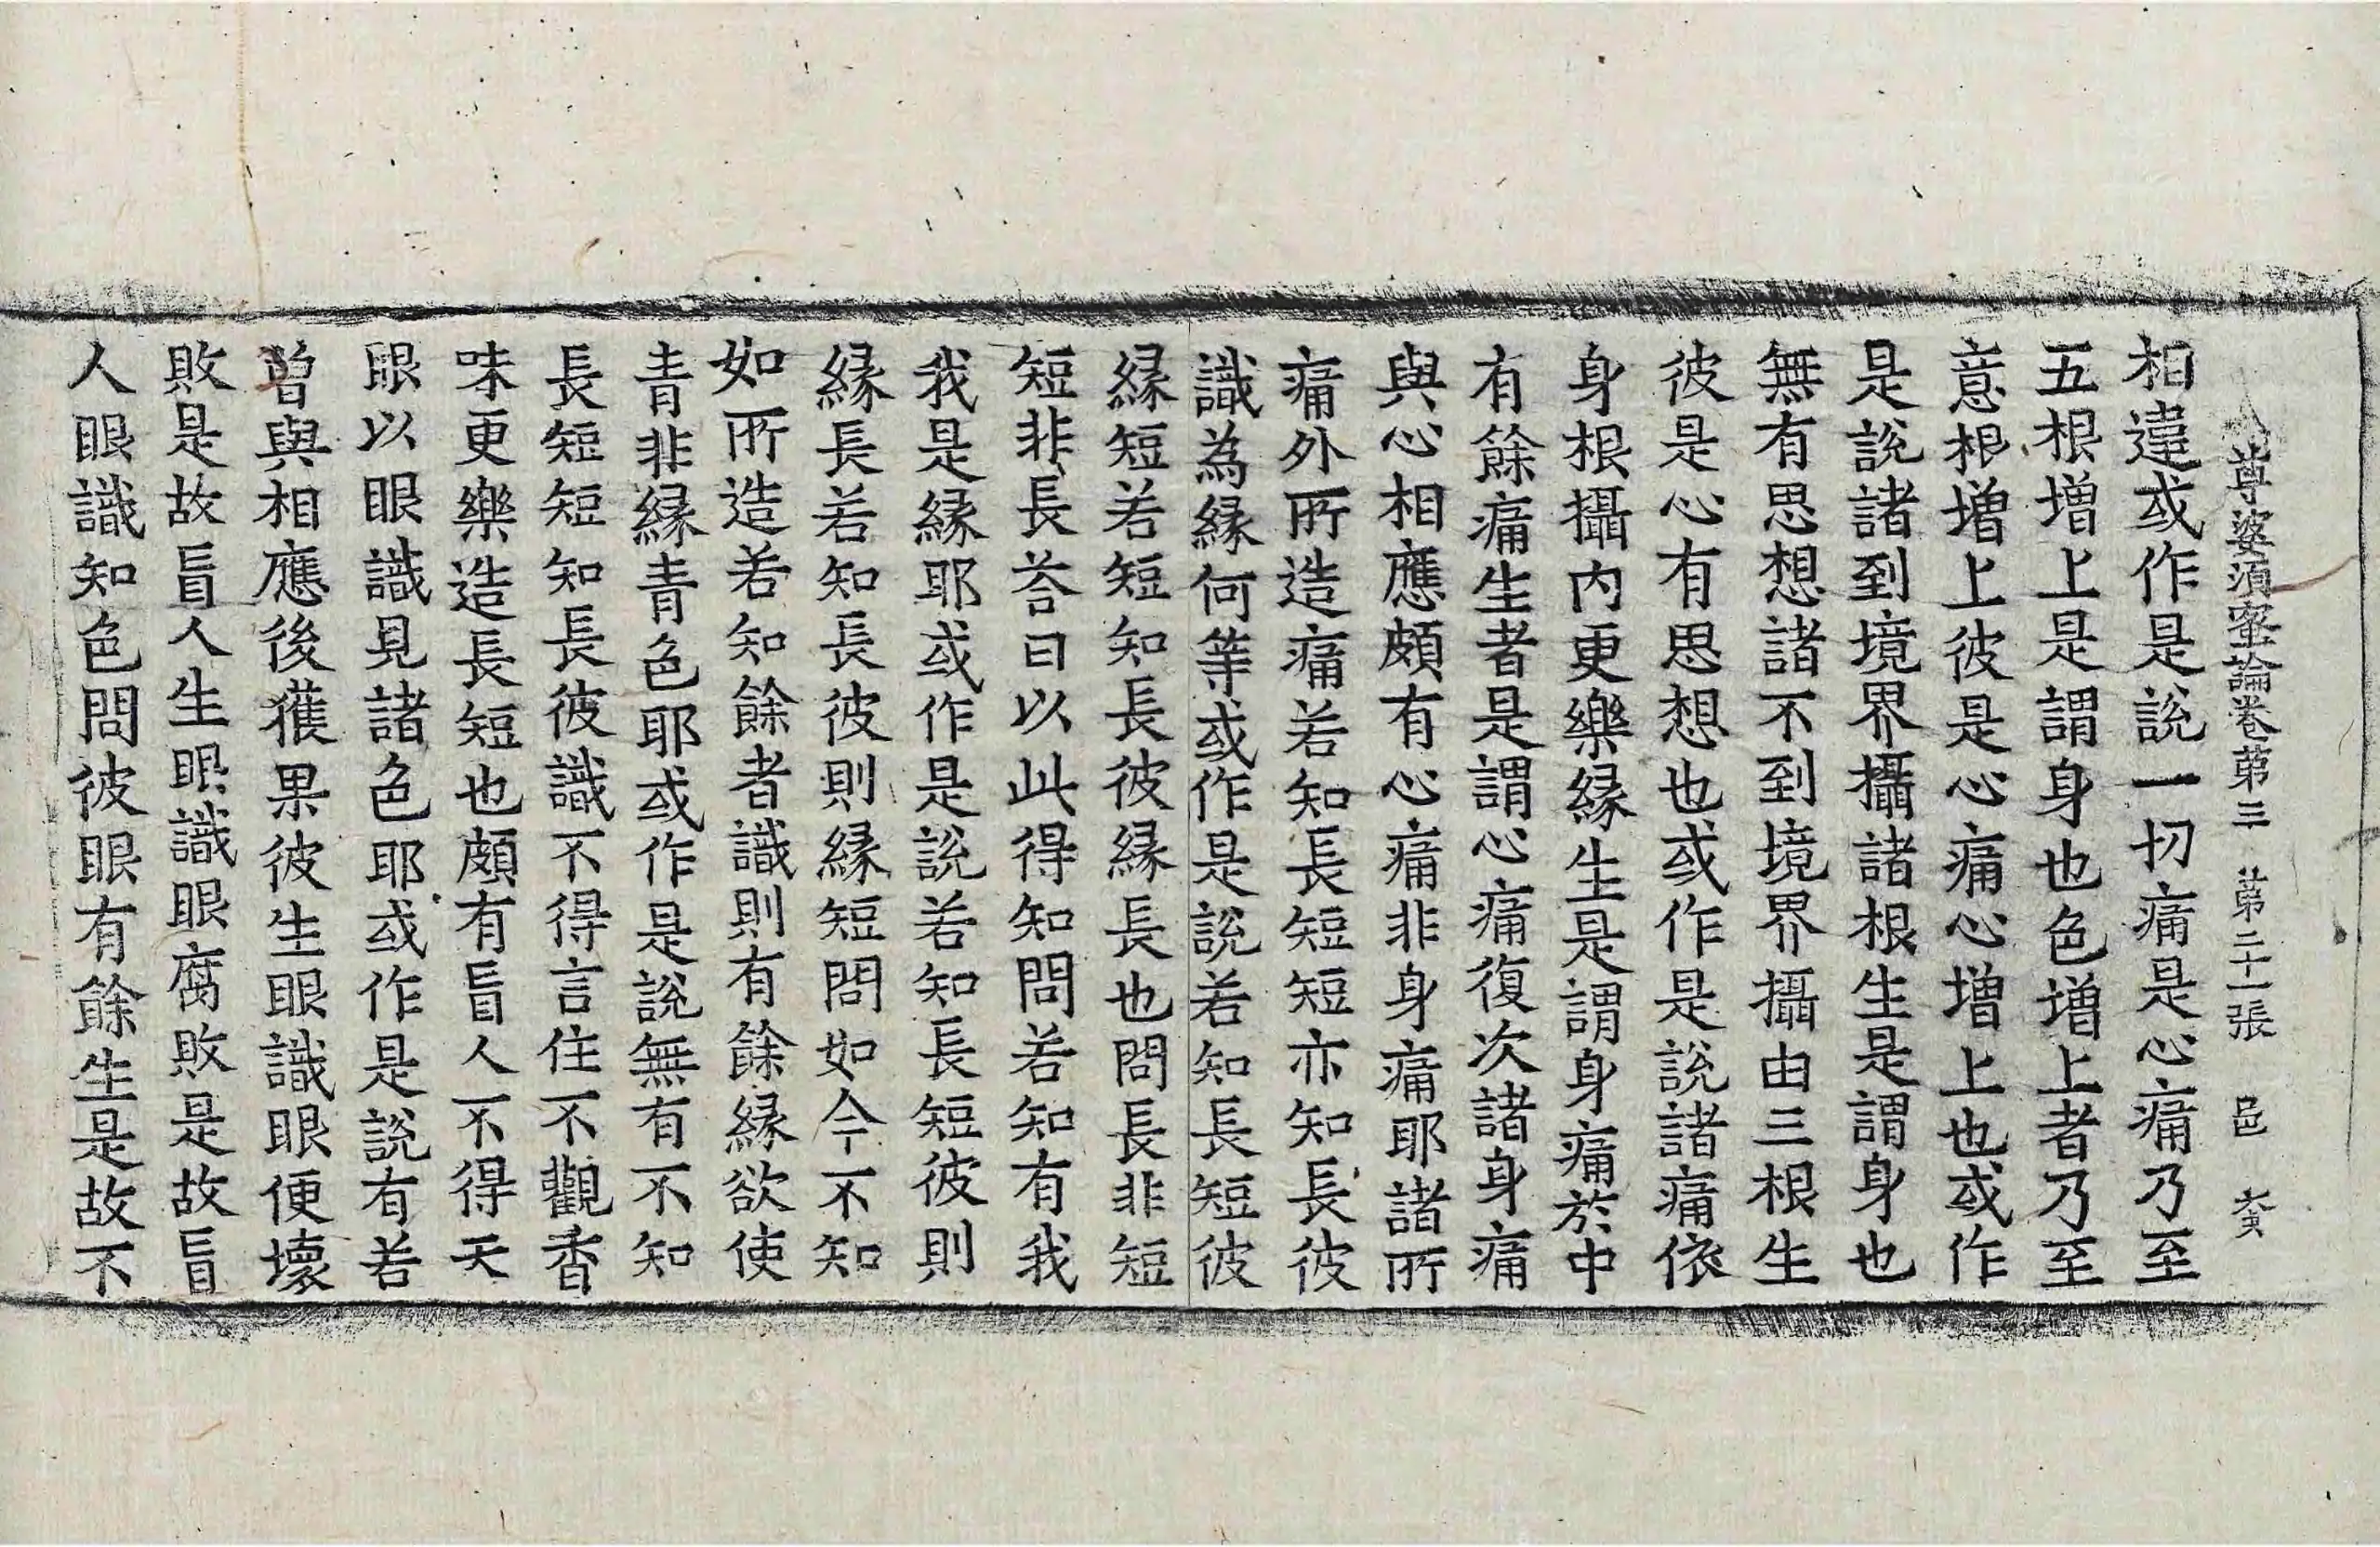 尊婆湏蜜論卷苐三 苐二十一張 邑
相違或作是說一切痛是心痛乃至
五根増上是謂身也色増上者乃至
意根増上彼是心痛心増上也或作
是說諸到境界攝諸根生是謂身也
無有思想諸不到境界攝由三根生
彼是心有思想也或作是說諸痛依
身根攝内更樂縁生是謂身痛於中
有餘痛生者是謂心痛復次諸身痛
與心相應頗有心痛非身痛耶諸所
痛外所造痛若知長短短亦知長彼
識為縁何等或作是說若知長短彼
縁短若短知長彼縁長也問長非短
短非長荅曰以此得知問若知有我
我是縁耶或作是說若知長短彼則
縁長若知長彼則縁短問如今不知
如所造若知餘者識則有餘縁欲使
青非縁青色耶或作是說無有不知
長短短知長彼識不得言住不觀香
味更樂造長短也頗有盲人不得天
眼以眼識見諸色耶或作是說有若
曽與相應後獲果彼生眼識眼便壞
敗是故盲人生眼識眼腐敗是故盲
人眼識知色問彼眼有餘生是故不